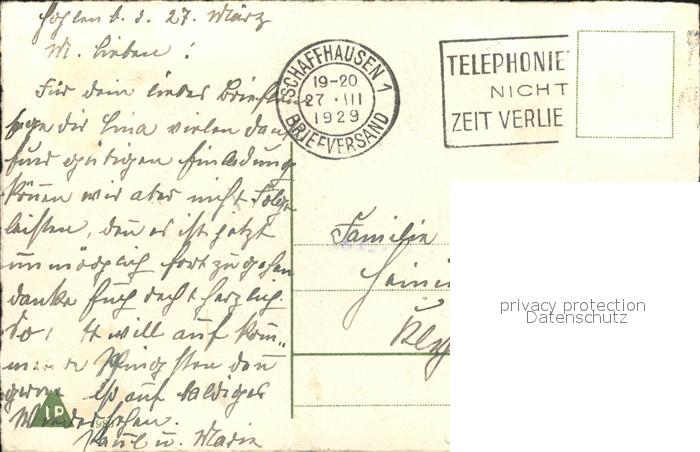 d. 27. März
M. Lieben!
Für dein liebes Brieflein
sage dir Lina vielen Dank
Eurer gütigen Einladung
können wir aber nicht Folge
leisten, denn es ist jetzt
unmöglich fort zu gehen
danke Euch recht herzlich.
will auf
Pfingsten dann
gerne auf baldiges
Wiedersehen.
Paul u. Marie
SCHAFFHAUSEN 1
19-20
27. III
1929
BRIEFVERSAND
TELEPHONIE
NICHT
ZEIT VERLIE
Familie
privacy protection
Datenschutz
IP